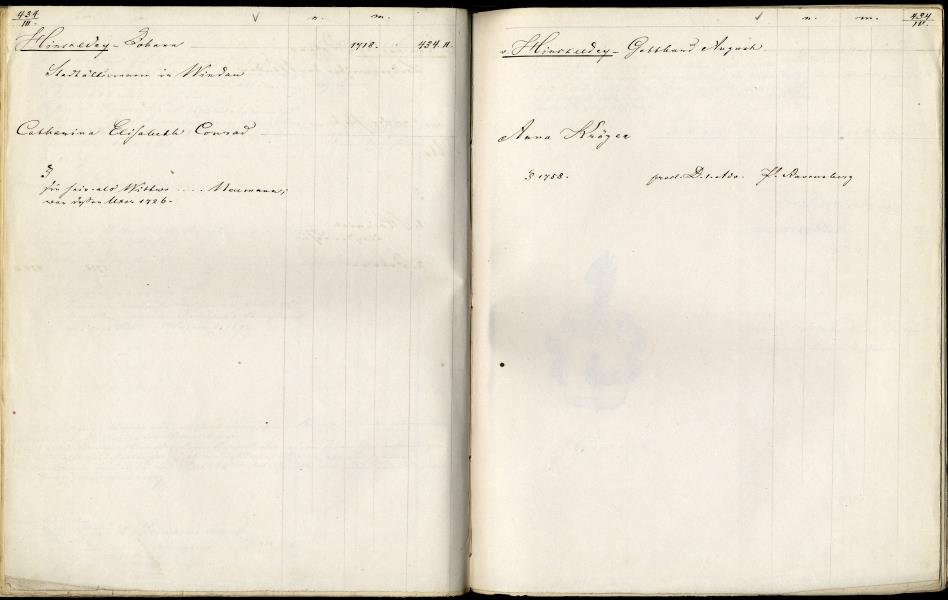 434 III. n. m.
Hinckeldey - Johann 1718. 434. II.
Stadtältermann in Windau
Catharina Elisabeth Conrad
für sein als Wittwe .... Neumann;
war dessen 1726.
434 IV. n. m.
v. Hinckeldey - Gotthard August
Anna Kröger
1758. prod. D. 1. Ado. Pf. Ravensberg